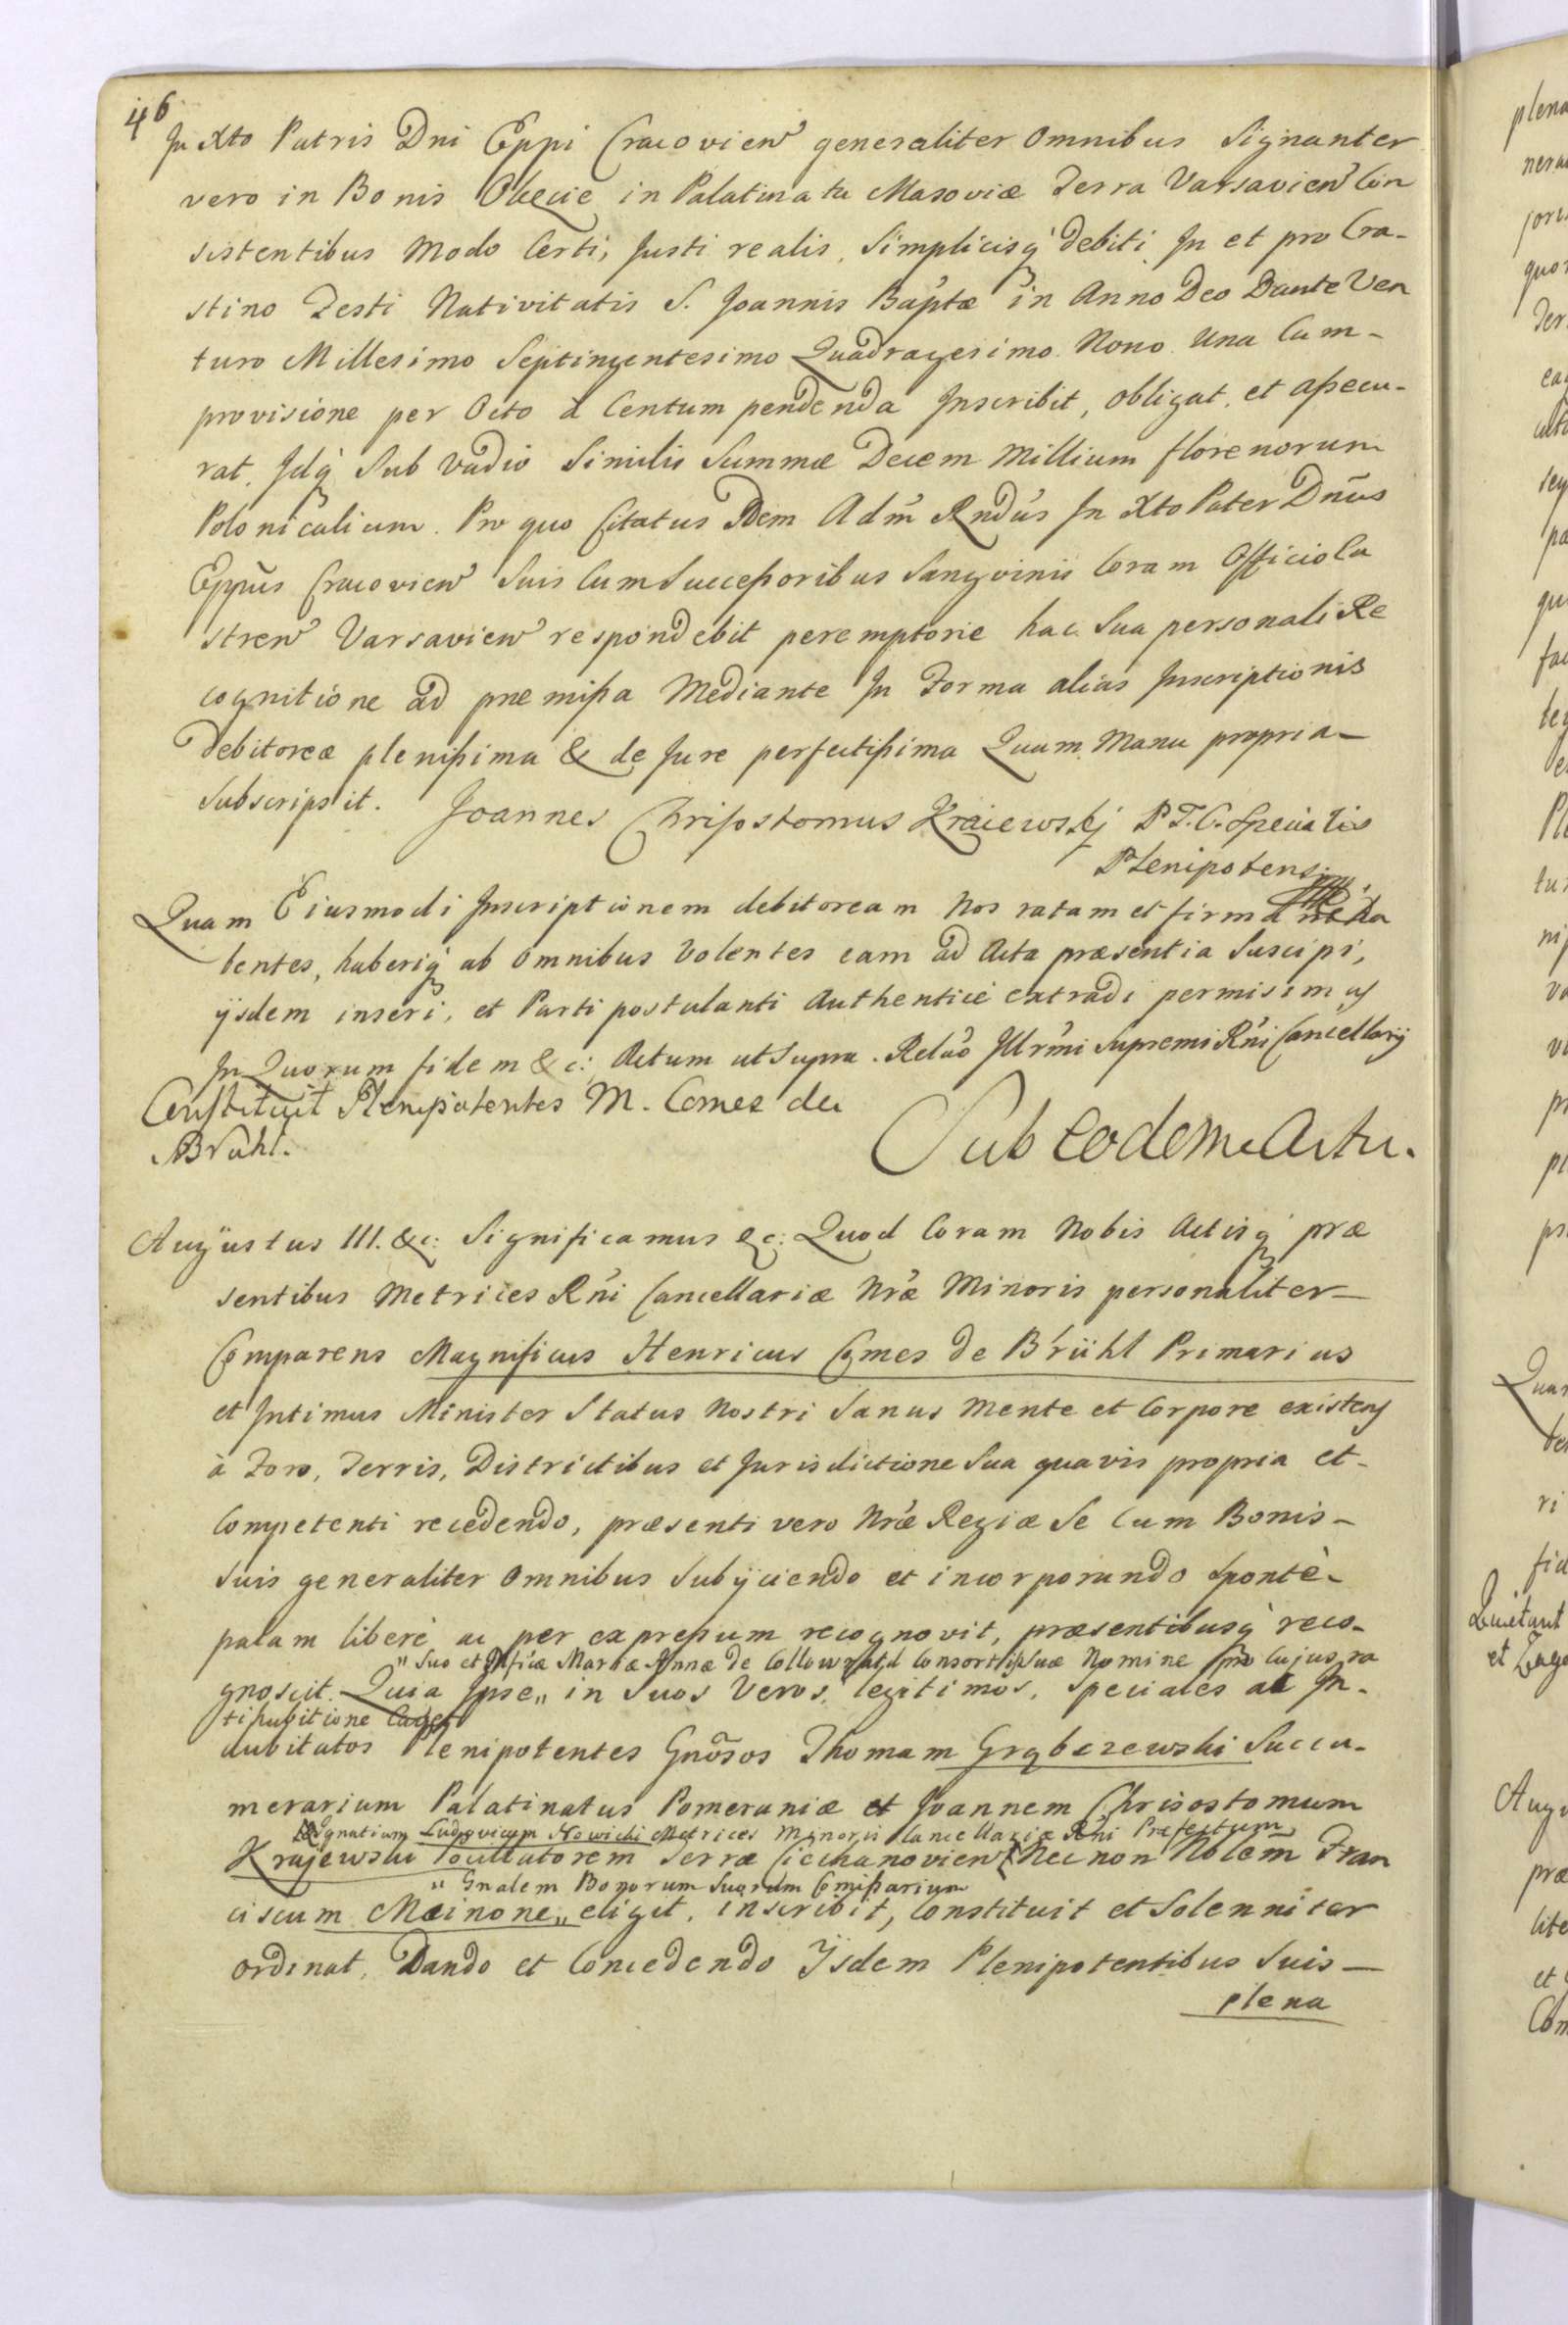 46
In Xto Patris Dni Eppi Cracovien generaliter omnibus Signanter
vero in Bonis in Palatinatu Masoviæ Terra Varsavien Con
sistentibus modo Certi, Justi realis, Simplicisq debiti In et pro Cra-
stino Festi Nativitatis S. Joannis Baptæ in Anno Deo Dante Ven
turo Millesimo Septingentesimo Quadragesimo Nono Una Cum-
provisione per Octo à Centum pendenda Inscribit, obligat, et assecu-
rat, Idq Sub Vadio Similis Summæ Decem Millium florenorum
Polonicalium. Pro quo Citatus Idem Adm Rndus In Xto Pater Dnus
Eppus Cracovien Suis Cum Successoribus Sangvinis Coram Officio Ca
stren Varsavien respondebit peremptorie hac Sua personali Re
cognitione ad præmissa Mediante In Forma alias Inscriptionis
debitoreæ plenissima & de Jure perfectissima Quam Manu propria-
Subscripsit. Joannes Chrisostomus Kraiewskj P. T. C. Specialis
Plenipotens
Quam Eiusmodi Inscriptionem debitoream Nos ratam et firma ha
bentes, haberiq ab omnibus Volentes eam ad Acta præsentia Suscipi,
ijsdem inseri, et Parti postulanti Authenticè extradi permisimus
In Quorum fidem &c: Actum ut Supra. Relao Illrmi Supremi Rni Cancellarij
Constituit Plenipotentes M. Comes de
Bruhl.
Sub eodem Actu.
Augustus III. &c: Significamus &c: Quod Coram Nobis Actisq præ
sentibus Metrices Rni Cancellariæ Nræ Minoris personaliter-
Comparens Magnificus Henricus Comes de Brühl Primarius
et Intimus Minister Status Nostri Sanus Mente et Corpore existens
à Foro, Terris, Districtibus et Jurisdictione Sua quavis propria et-
Competenti recedendo, præsenti vero Nræ Regiæ Se Cum Bonis-
Suis generaliter omnibus Subijciendo et incorporando Sponte-
palam liberè ac per expressum recognovit, præsentibusq reco-
" Suo et Mficæ Mariæ Annæ de Collowrath Consortis Suæ Nomine pro Cujus ra
gnoscit. Quia Ipse " in Suos Veros, legitimos, Speciales ac In-
tihabitione Cavet
dubitatos Plenipotentes Gnosos Thomam Grąbczewski Succa-
merarium Palatinatus Pomeraniæ et Joannem Chrisostomum
Ignatium Ludovicum Nowicki Metrices Minoris Cancellariæ Rni Præfectum
Krajewski Pocillatorem Terræ Ciechanovien Nec non Nblem Fran
" Gnalem Bonorum Suorum Comissarium
ciscum Meinone " eligit, inscribit, Constituit et Solenniter
ordinat, Dando et Concedendo Ijsdem Plenipotentibus Suis-
plena